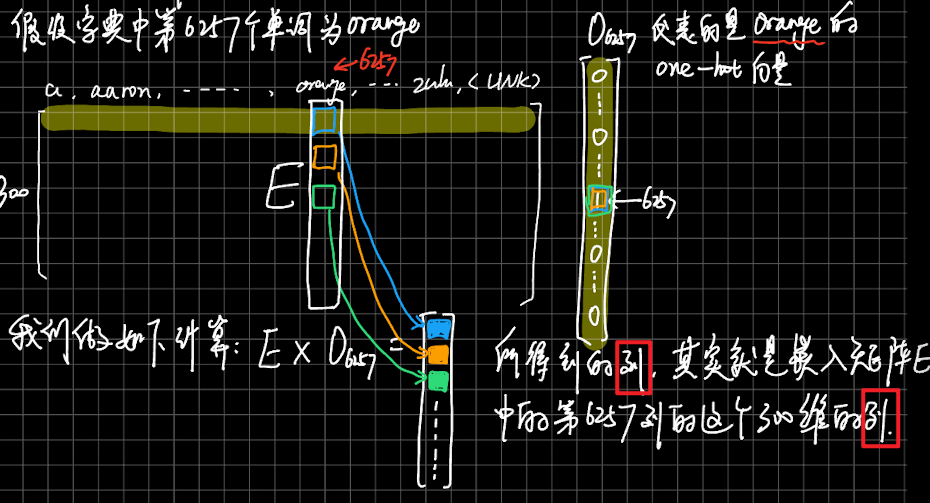 假设字典中第6257个单词为orange
←6257
a, aaron, ----- , orange, --- zulu, <UNK>
300
E
O6257 代表的是 orange 的
one-hot 向量
0
0
1 ←6257
0
0
我们做如下计算: E × O6257 =
所得到的列, 其实就是嵌入矩阵E
中的第6257列的这个300维的列.